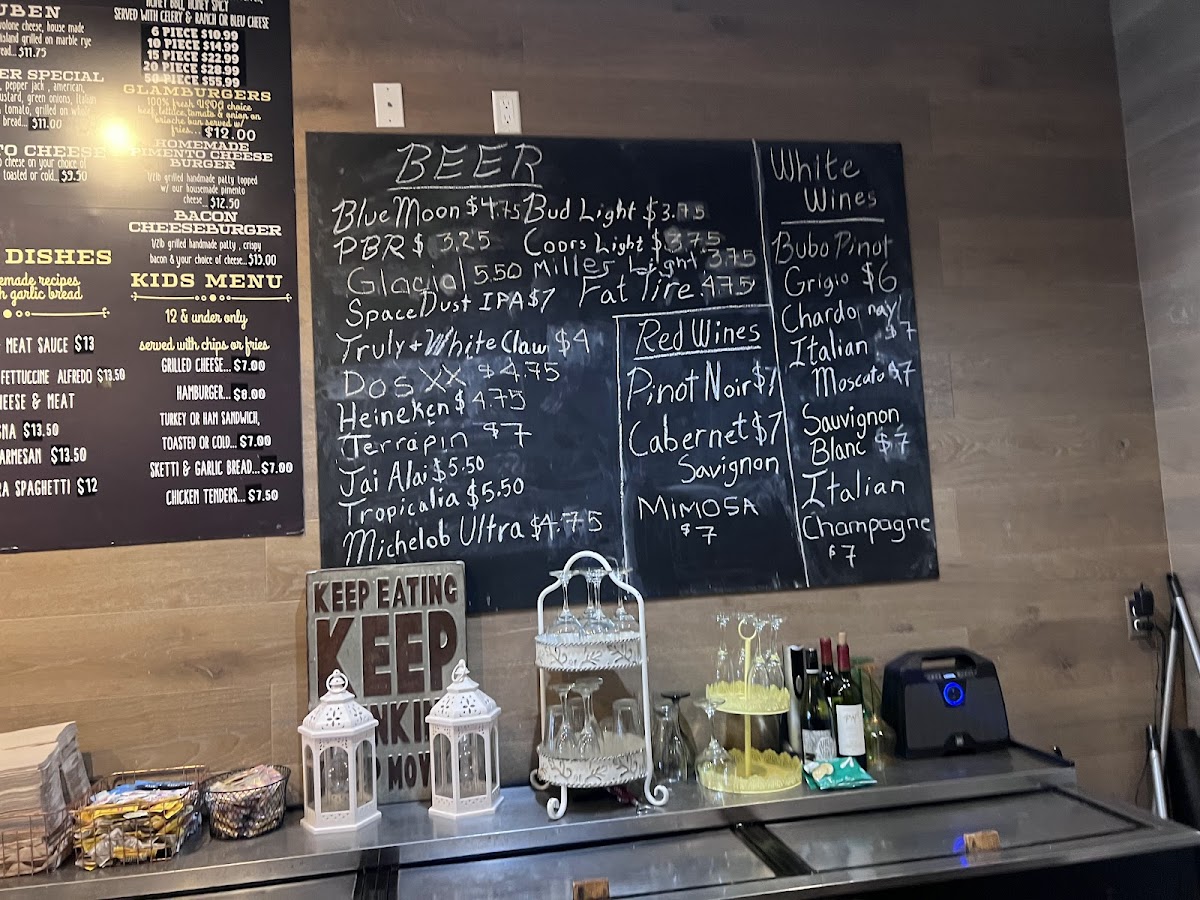 UBEN
volone cheese, house made
island grilled on marble rye
...$11.75
ER SPECIAL
, pepper jack , american,
ustard, green onions, Italian
tomato, grilled on
bread...$11.00
TO CHEESE
o cheese on your choice of
toasted or cold...$9.50
DISHES
emade recipes
h garlic bread
MEAT SAUCE $13
FETTUCCINE ALFREDO $13.50
HEESE & MEAT
GNA $13.50
ARMESAN $13.50
RA SPAGHETTI $12
HONEY BBQ, HONEY SPICY
SERVED WITH CELERY & RANCH OR BLEU CHEESE
6 PIECE $10.99
10 PIECE $14.99
15 PIECE $22.99
20 PIECE $28.99
50 PIECE $55.99
GLAMBURGERS
100% fresh USDA choice
beef, lettuce, tomato & onion on
brioche bun served w/
fries... $12.00
HOMEMADE
PIMENTO CHEESE
BURGER
1/2lb grilled handmade patty topped
w/ our housemade pimento
cheese...$12.50
BACON
CHEESEBURGER
1/2lb grilled handmade patty , crispy
bacon & your choice of cheese...$13.00
KIDS MENU
12 & under only
served with chips or fries
GRILLED CHEESE... $7.00
HAMBURGER... $8.00
TURKEY OR HAM SANDWICH,
TOASTED OR COLD... $7.00
SKETTI & GARLIC BREAD...$7.00
CHICKEN TENDERS... $7.50
BEER
Blue Moon $4.75 Bud Light $3.75
PBR $ 3.25 Coors Light $3.75
Glacial 5.50 Miller Light 3.75
Space Dust IPA $7 Fat Tire 4.75
Truly + White Claw $4
Dos XX $4.75
Heineken $4.75
Terrapin $7
Jai Alai $5.50
Tropicalia $5.50
Michelob Ultra $4.75
Red Wines
Pinot Noir $7
Cabernet $7
Savignon
MIMOSA
$7
White
Wines
Bubo Pinot
Grigio $6
Chardonnay/
$7
Italian
Moscato $7
Sauvignon
Blanc $7
Italian
Champagne
$7
KEEP EATING
KEEP
NKI
P MOV